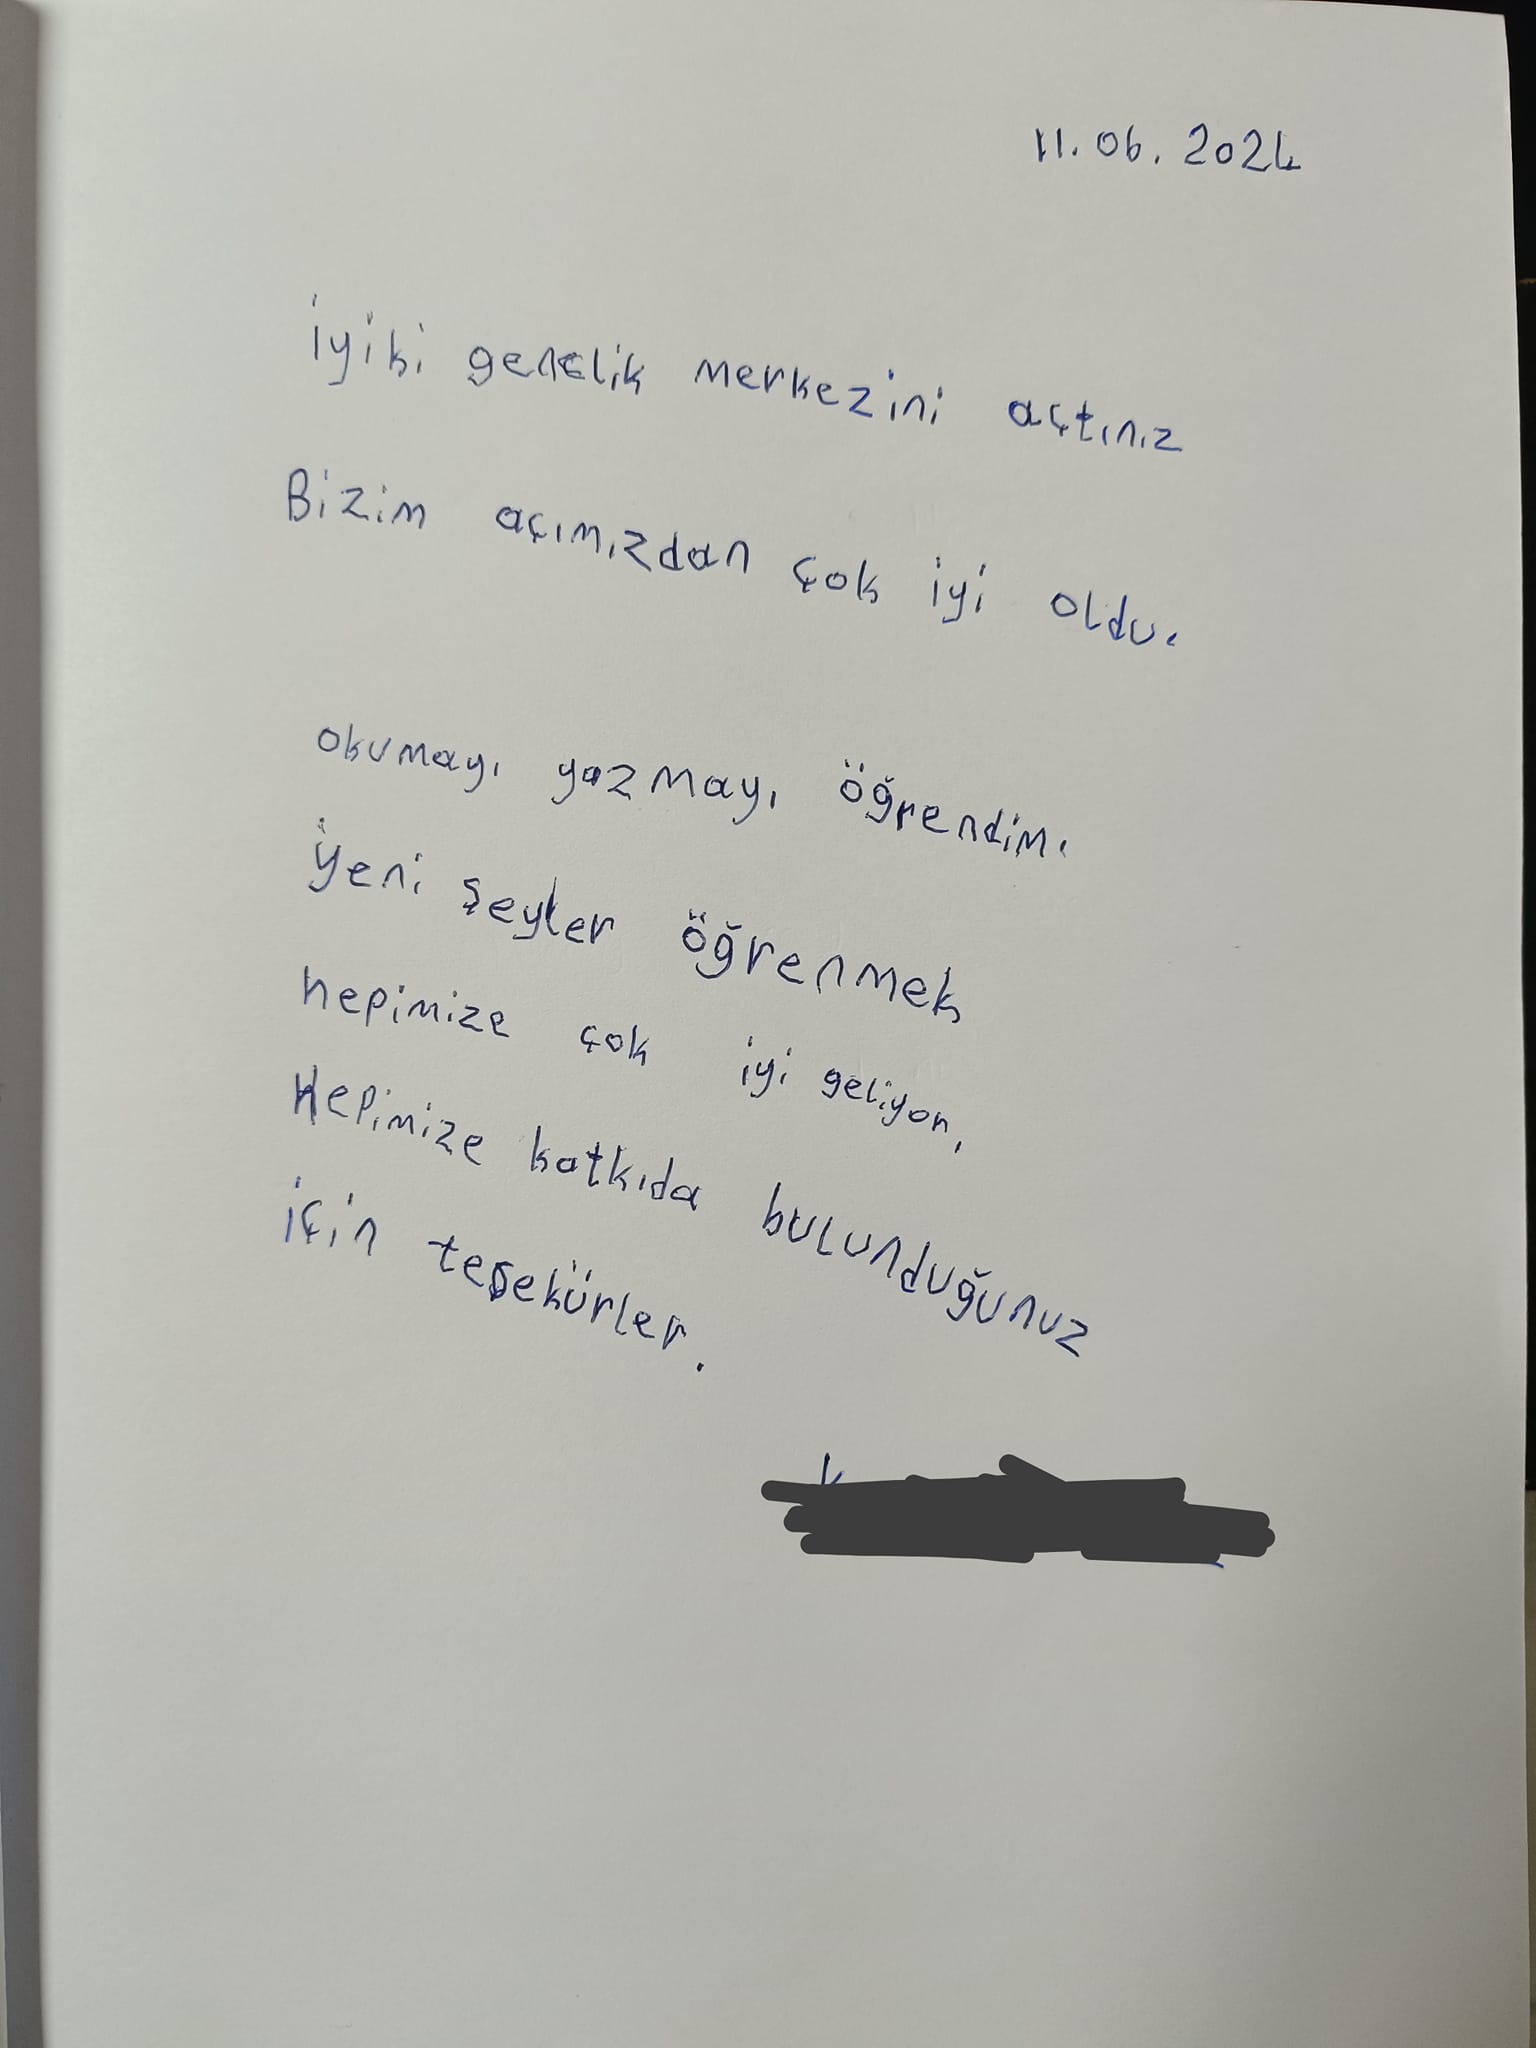 11.06.2024
iyiki gençlik merkezini açtınız
Bizim açımızdan çok iyi oldu.
okumayı yazmayı öğrendim.
yeni şeyler öğrenmek
hepimize çok iyi geliyor,
Hepimize katkıda bulunduğunuz
için teşekürler.